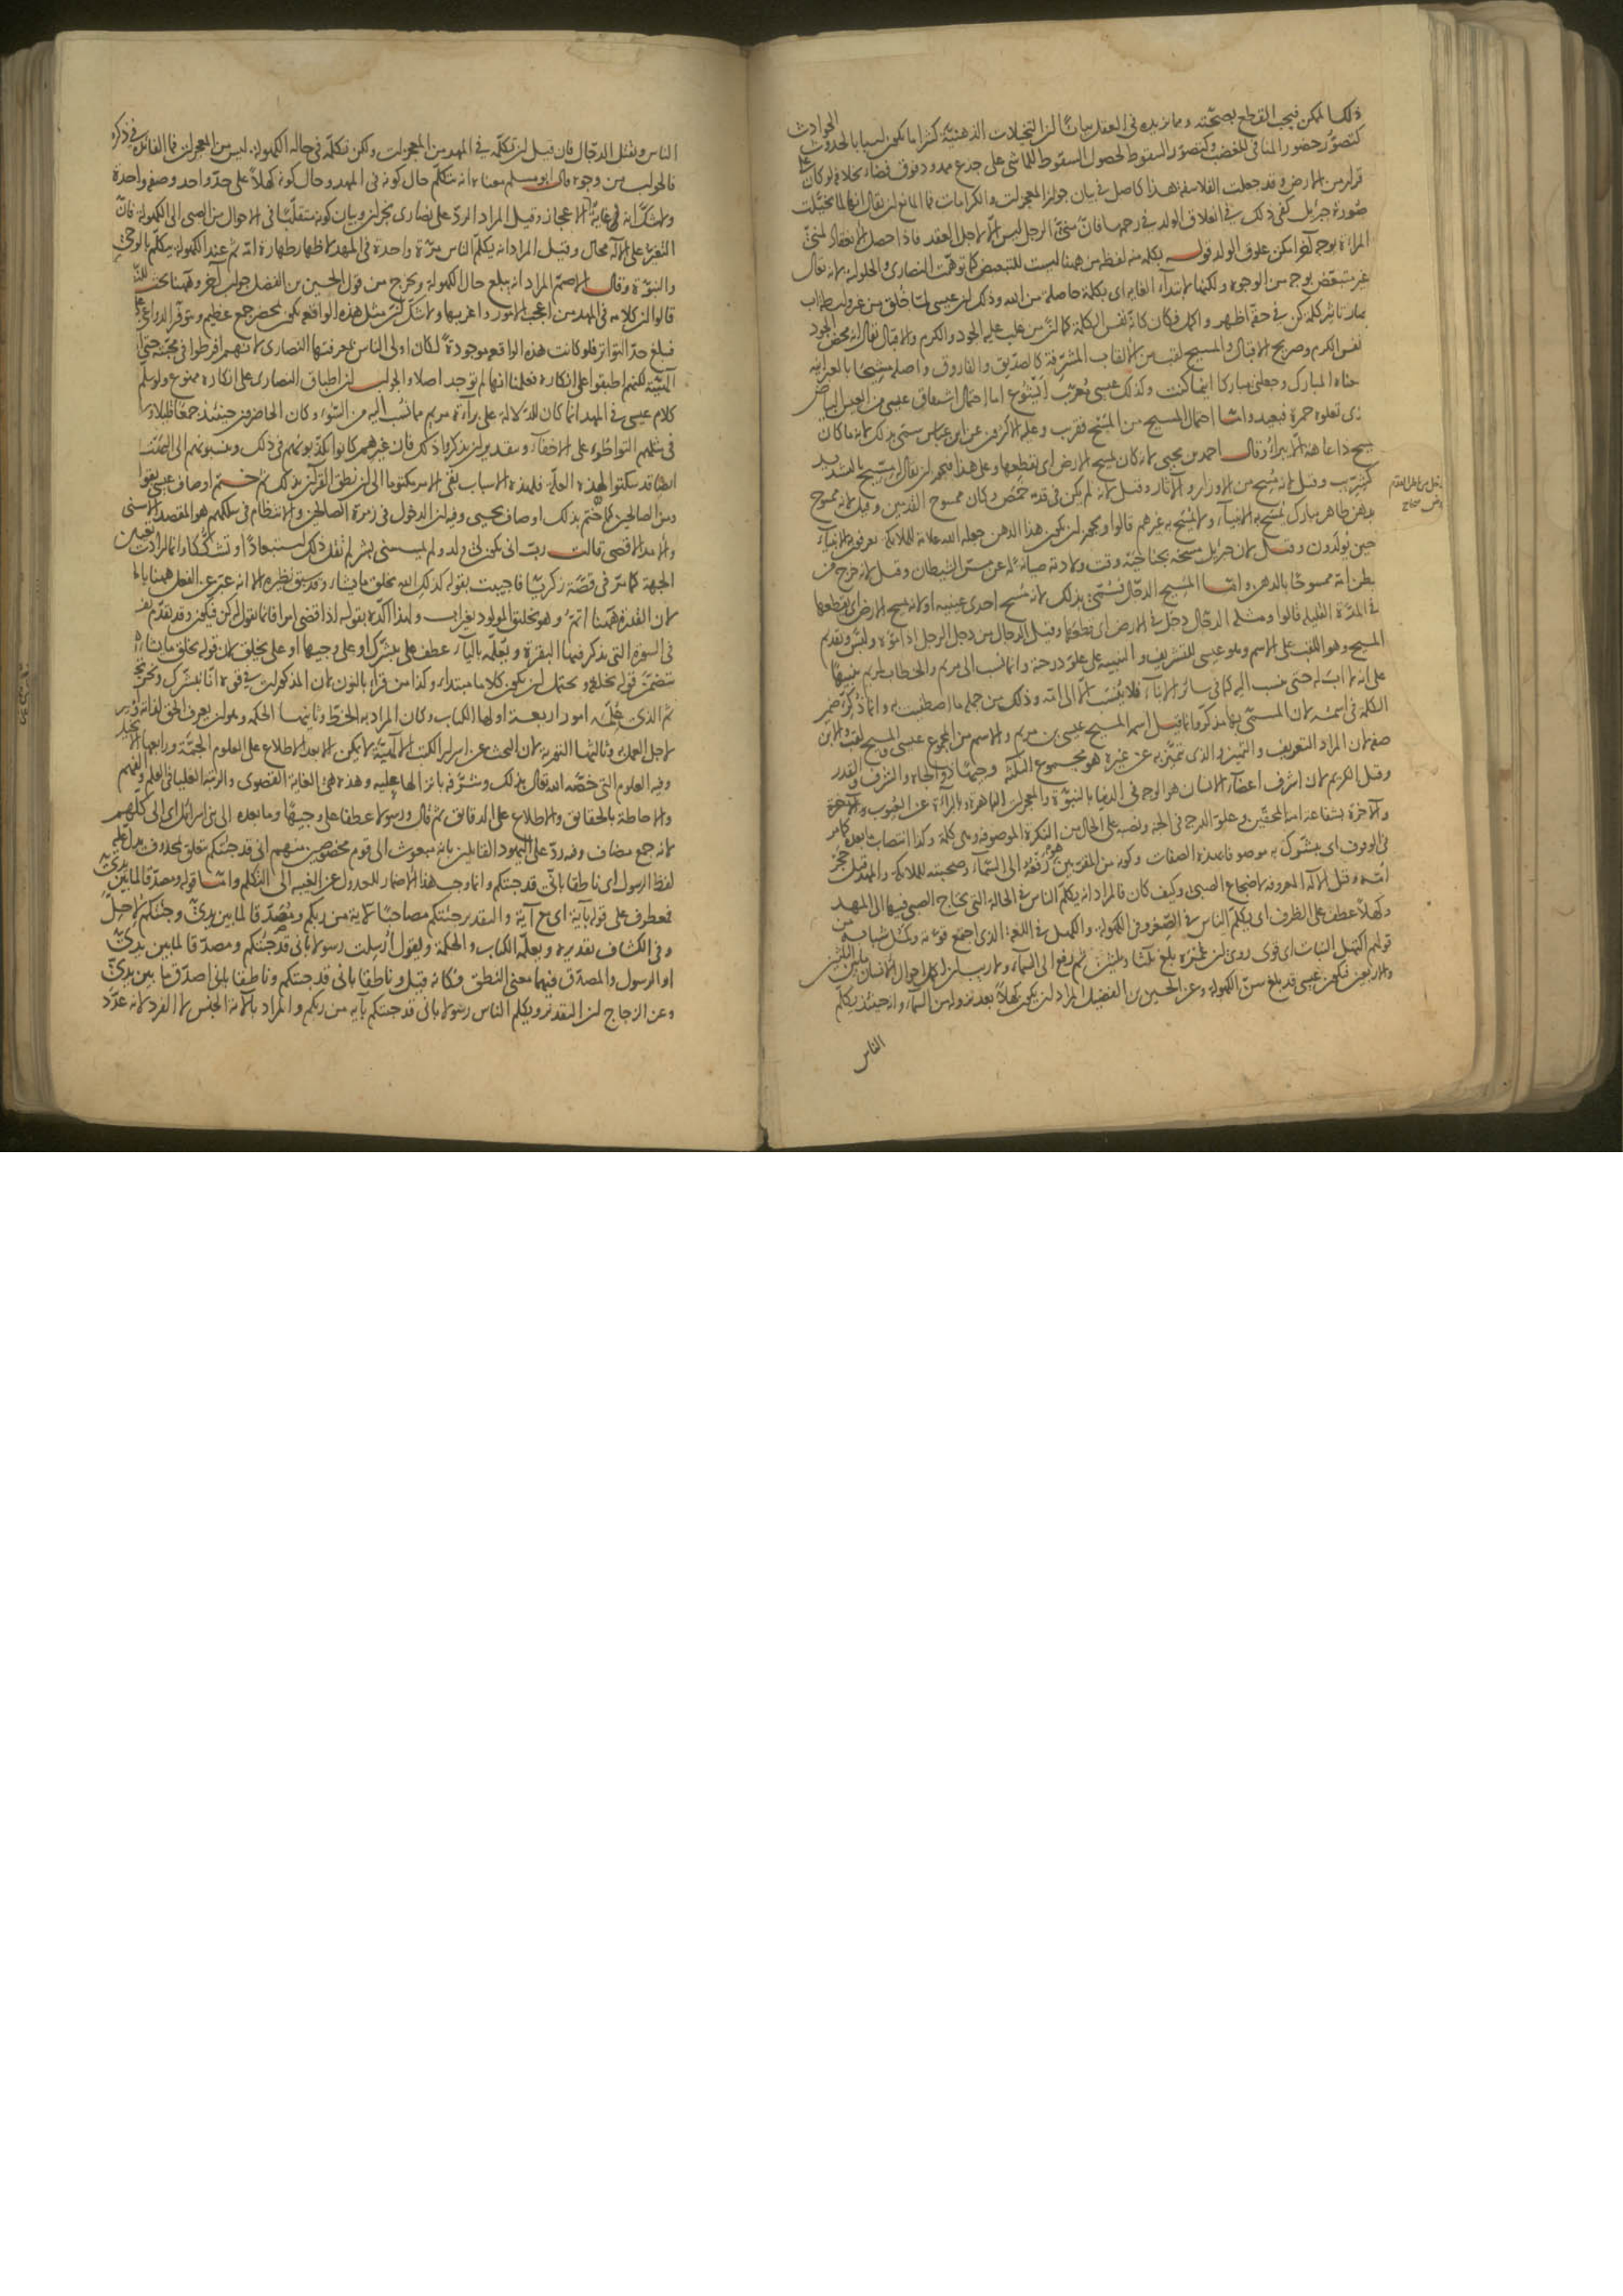 ذلك الممكن فيجب القطع بصحته ومما يزيده في العقل بيانا أن التخيلات الذهنية كثيرا ما تكون أسبابا لحدوث الحوادث
كتصور حضور المنافي للغضب وكتصور السقوط لحصول السقوط للماشي على جذع ممدود فوق فضاء بخلافه لو كان على
قرار من الارض وقد جعلت الفلاسفة هذا كاصل في بيان جواز المعجزات والكرامات فما المانع ان يقال انها لما تخيلت
صورة جبرئيل كفى ذلك في انعلاق الولد في رحمها فان مني الرجل ليس الا لاجل العقد فاذا حصل الانعقاد لمني
المراة بوجه آخر امكن علوق الولد قوله بكلمة منه لفظة من ههنا ليست للتبعيض كما توهمت النصارى والحلولية لانه تعالى
غير متبعض بوجه من الوجوه ولكنها لابتداء الغاية اى بكلمة حاصلة من الله وذلك ان عيسى لما خلق من غير واسطة اب
صار تاثير كلمة كن في حقه اظهر واكمل فكان كانه نفس الكلمة كما ان من غلب عليه الجود والكرم والاقبال يقال انه محض الجود
نفس الكرم وصريح الاقبال والمسيح لقب من الالقاب المشرفة كالصديق والفاروق واصله مشيحا بالعبرانية
معناه المبارك وجعلني مباركا اينما كنت وكذلك عيسى معرب ايشوع اما احتمال اشتقاق عيسى من العيس البياض
الذى تعلوه حمرة فبعيد واما احتمال المسيح من المسح فقريب وعليه الاكثرون عن ابن عباس سمى بذلك لانه ما كان
يمسح ذا عاهة الا برأ وقال احمد بن يحيى لانه كان يمسح الارض اى يقطعها وعلى هذا فيجوز ان يقال له مسيح بالتشديد
كشريب وقيل لانه مسح من الاوزار والآثام وقيل لانه لم يكن في قدمه خمص وكان ممسوح القدمين وقيل لانه ممسوح
بدهن طاهر مبارك تمسح به الانبياء ولا يمسح به غيرهم قالوا ويجوز ان يكون هذا الدهن جعله الله علامة للملائكة يعرفون الانبياء
حين يولدون وقيل لان جبرئيل مسحه بجناحيه وقت ولادته صيانة له عن مس الشيطان وقيل لانه خرج من
بطن امه ممسوحا بالدهن واما المسيح الدجال فسمى بذلك لانه مسح احدى عينيه او لانه يمسح الارض اى يقطعها
في المدة القليلة قالوا ومثله الدجال دجل في الارض اى قطعها وقيل الدجال من دجل الرجل اذا موه ولبس وتقديم
المسيح وهو اللقب على الاسم وهو عيسى للتشريف والتنبيه على علو درجته وانما نسب الى مريم والخطاب لمريم تنبيها
على انه لا اب له حتى ينسب اليه كما في سائر الابناء فلا ينسب الا الى امه وذلك من جملة ما اصطفيت به وانما ذكر ضمير
الكلمة في اسمه لان المسمى بها مذكر وانما قيل اسمه المسيح عيسى بن مريم والاسم من المجموع عيسى والمسيح لقب والابن
صفة لان المراد التعريف والتمييز والذى يتميز به عن غيره هو مجموع الثلاثة وجيها ذو الجاه والشرف والقدر
وقيل الكريم لان اشرف اعضاء الانسان هو الوجه في الدنيا بالنبوة والمعجزات الباهرة والبراءة عن العيوب والآخرة
والآخرة بشفاعة امته المحقين وعلو الدرجة في الجنة ونصبه على الحال من النكرة الموصوفة وهى كلمة وكذا انتصاب ما بعده كما مر
في الوقوف اى يبشرك به موصوفا بهذه الصفات وكونه من المقربين هو رفعه الى السماء وصحبته للملائكة والمهد قيل حجر
امه وقيل الآلة المعروفة لاضجاع الصبى وكيف كان فالمراد انه يكلم الناس في الحالة التى يحتاج الصبى فيها الى المهد
وكهلا عطف على الظرف اى ويكلم الناس في الصغر وفي الكهولة والكهل في اللغة الذى اجتمع قوته وكمل شبابه من
قولهم اكتهل النبات اى قوى روى ان عمره بلغ ثلثا وثلثين ثم رفع الى السماء ولا ريب ان اكمل احوال الانسان ما بين الثلثين
والاربعين فيكون عيسى قد بلغ سن الكهولة وعن الحسين بن الفضيل المراد ان يكون كهلا بعد نزوله من السماء وانه حينئذ يكلم
الناس
الناس ويقتل الدجال فان قيل ان تكلمه في المهد من المعجزات ولكن تكلمه في حالة الكهولة ليس من المعجزات فما الفائدة في ذكره
فالجواب من وجوه قال ابو مسلم معناه انه يتكلم حال كونه في المهد وحال كونه كهلا على حد واحد وصفة واحدة
ولا شك انه في غاية الاعجاز وقيل المراد الرد على نصارى نجران وبيان كونه متقلبا في الاحوال من الصبى الى الكهولة فان
التغير على الاله محال وقيل المراد انه يكلم الناس مرة واحدة في المهد لاظهار طهارة امه ثم عند الكهولة يتكلم بالوحى
والنبوة وقال الاصم المراد انه يبلغ حال الكهولة ويخرج من قول الحسين بن الفضل جواب آخر وههنا بحث للنصارى
قالوا ان كلامه في المهد من اعجب الامور واغربها ولا شك ان مثل هذه الواقعة يكون بمحضر جمع عظيم وتتوفر الدواعى على
فبلغ حد التواتر فلو كانت هذه الواقعة موجودة لكان اولى الناس بمعرفتها النصارى لانهم افرطوا في محبته حتى
الهيته لكنهم اطبقوا على انكاره فعلمنا انها لم توجد اصلا والجواب ان اطباق النصارى على انكاره ممنوع ولو سلم
كلام عيسى في المهد انما كان للدلالة على براءة مريم مما نسب اليه من السوء وكان الحاضرون حينئذ جمعا قليلا ولا
في مثلهم التواطؤ على الاخفاء وبتقدير ان يذكروا ذلك فان غيرهم كانوا يكذبونهم في ذلك وينسبونهم الى البهت
ايضا قد سكتوا لهذه العلة فلهذه الاسباب بقى الامر مكتوما الى ان نطق القرآن بذلك ثم ختم اوصاف عيسى بقوله
ومن الصالحين كما ختم بذلك اوصاف يحيى وفيه ان الدخول في زمرة الصالحين والانتظام في سلكهم هو المقصد الاسنى
والامد الاقصى قالت رب انى يكون لى ولد ولم يمسسنى بشر لم تقل ذلك استبعادا او تشككا وانما ارادت تعيين
الجهة كما مر في قصة زكريا فاجيبت بقوله كذلك الله يخلق ما يشاء وقد سبق نظيره الا انه عبر عن الفعل ههنا بالخلق
لان القدرة ههنا اتم وهو تخليق المولود بغير اب ولهذا اكده بقوله اذا قضى امرا فانما يقول له كن فيكون وقد تقدم
في السورة التى يذكر فيها البقرة ويعلمه بالياء عطف على يبشرك او على وجيها او على يخلق لان قوله يخلق ما يشاء
يتضمن قوله يخلقه ويحتمل ان يكون كلاما مبتداء وكذا من قرأ بالنون لان المذكورات في قوة انا نبشرك
ثم الذى علمه امور اربعة اولها الكتاب وكان المراد به الخط وثانيها الحكمة وهو ان يعرف الحق لذاته والخير
لاجل العمل به وثالثها التورية لان البحث عن اسرار الكتب الالهية لا يمكن الا بعد الاطلاع على العلوم الجمة ورابعها الانجيل
وفيه العلوم التى خصه الله تعالى بذلك وشرفه بانزالها عليه وهذه هى الغاية القصوى والرتبة العليا في العلم والفهم
والاحاطة بالحقائق والاطلاع على الدقائق ثم قال ورسولا عطفا على وجيها وما بعده الى بنى اسرائيل اى الى كلهم
لانه جمع مضاف وفيه رد على اليهود القائلين بانه مبعوث الى قوم مخصوصين منهم انى قد جئتكم متعلق بمحذوف يدل عليه
لفظ الرسول اى ناطقا بانى قد جئتكم وانما وجب هذا الاضمار للعدول عن الغيبة الى التكلم واما قوله ومصدقا لما بين يدى
فمعطوف على قوله بآية اى مع آية والتقدير جئتكم مصاحبا لآية من ربكم ومصدقا لما بين يدى وجئتكم لاحل
وفي الكشاف تقديره ويعلمه الكتاب والحكمة ويقول ارسلت رسولا بانى قد جئتكم ومصدقا لما بين يدى
او الرسول والمصدق فيهما معنى النطق وكانه قيل وناطقا بانى قد جئتكم وناطقا بانى اصدق ما بين يدى
وعن الزجاج ان التقدير ويكلم الناس رسولا بانى قد جئتكم بآية من ربكم والمراد بالآية الجنس لا الفرد لانه عدد